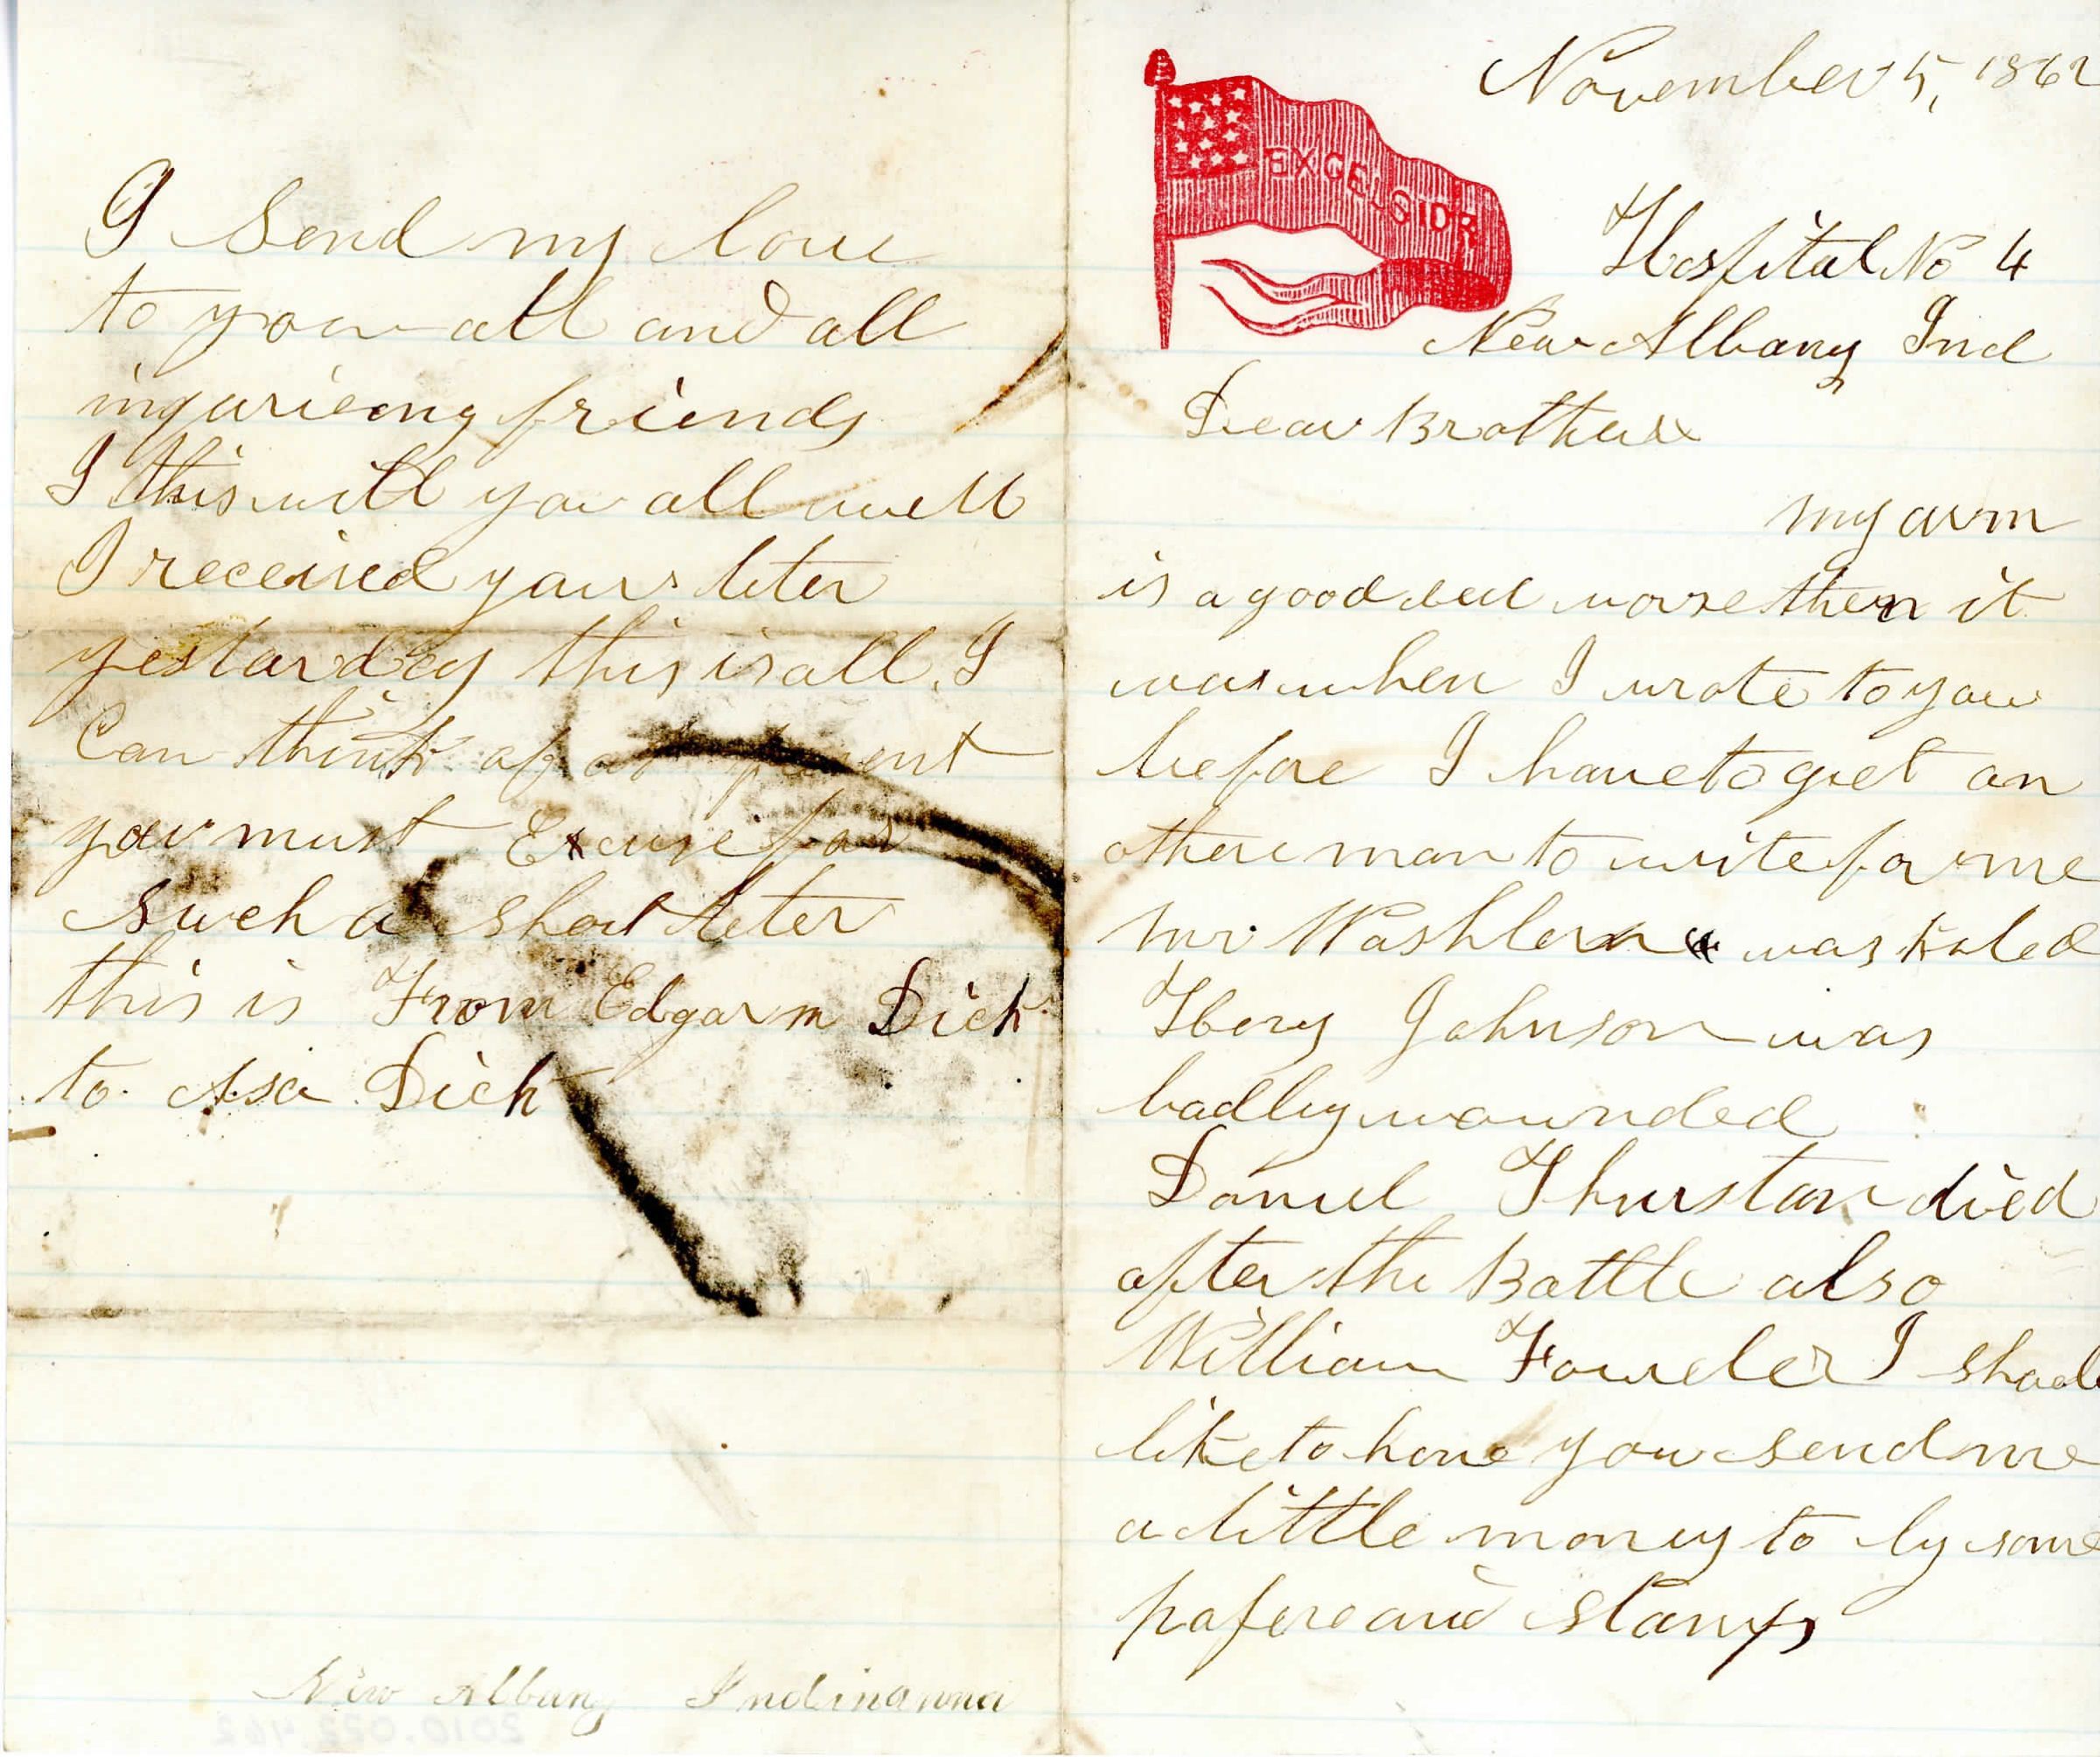 November 5, 1862
EXCELSIOR
Hospital No 4
New Albany Ind
Dear Brother
my arm
is a good deel worse then it
was when I wrote to you
before I have to giet an
othere man to write for me
Mr. was kiled
Johnson was
badley wounded
Daniel Thurstan died
after the Battle also
William Foweler I shoul
like to have you send me
a little money to by some
papere and stamps
I Send my love
to you all and all
inqurieing friends
I this will you all well
I received your leter
yestarday this is all I
Can think of at present
you must Excuse for
such a short leter
this is From Edgar m Dick
to Asa Dick
New Albany Indinanna
2010.022.462